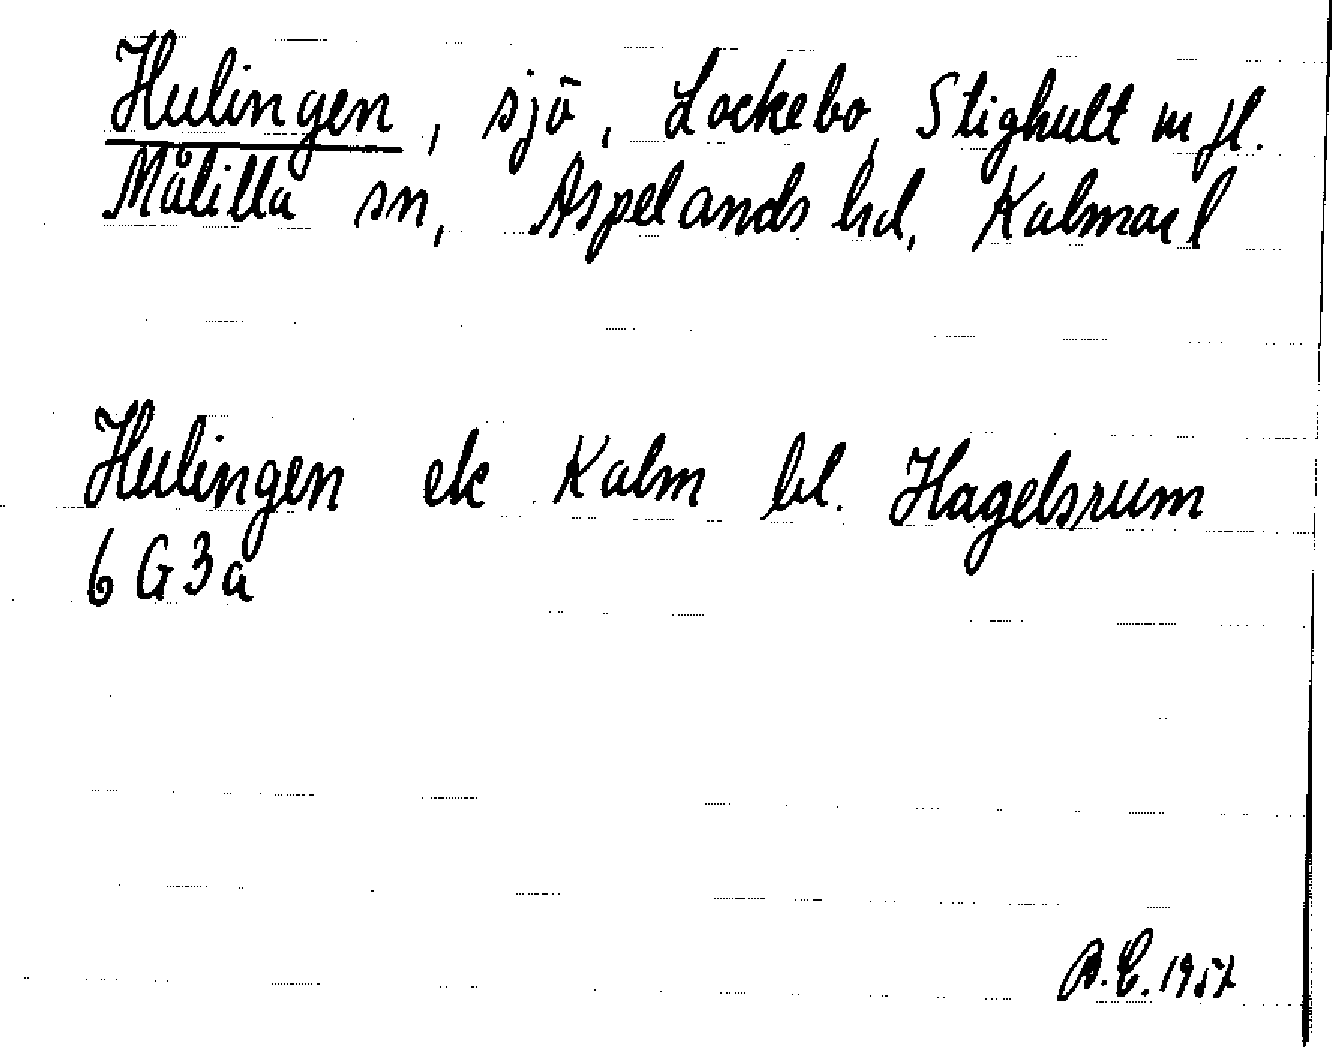 Hulingen, sjö, Lockebo, Stighult m fl.
Målilla sn, Aspelands hd, Kalmar l
Hulingen ek Kalm bl. Hagelsrum
6 G 3 a